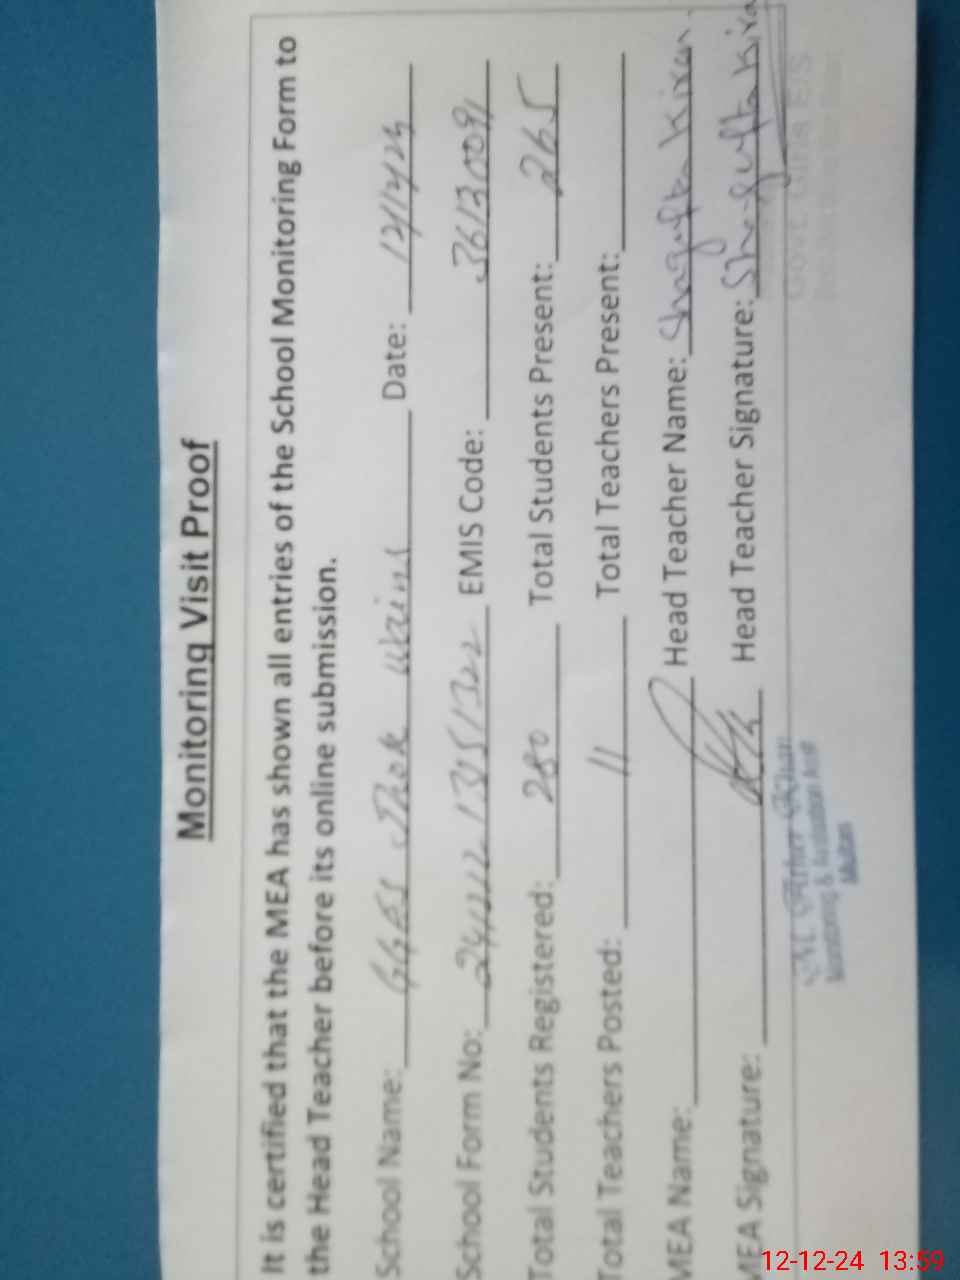 Monitoring Visit Proof
It is certified that the MEA has shown all entries of the School Monitoring Form to
the Head Teacher before its online submission.
School Name: GGES Jhok Wains Date: 12/12/24
School Form No: EMIS Code: 36130091
Total Students Registered: 280 Total Students Present: 265
Total Teachers Posted: 11 Total Teachers Present:
MEA Name: Head Teacher Name: Shagufta Kiran.
MEA Signature: Head Teacher Signature: Shagufta Kiran
Monitoring & Evaluation Asstt
Multan
12-12-24 13:59